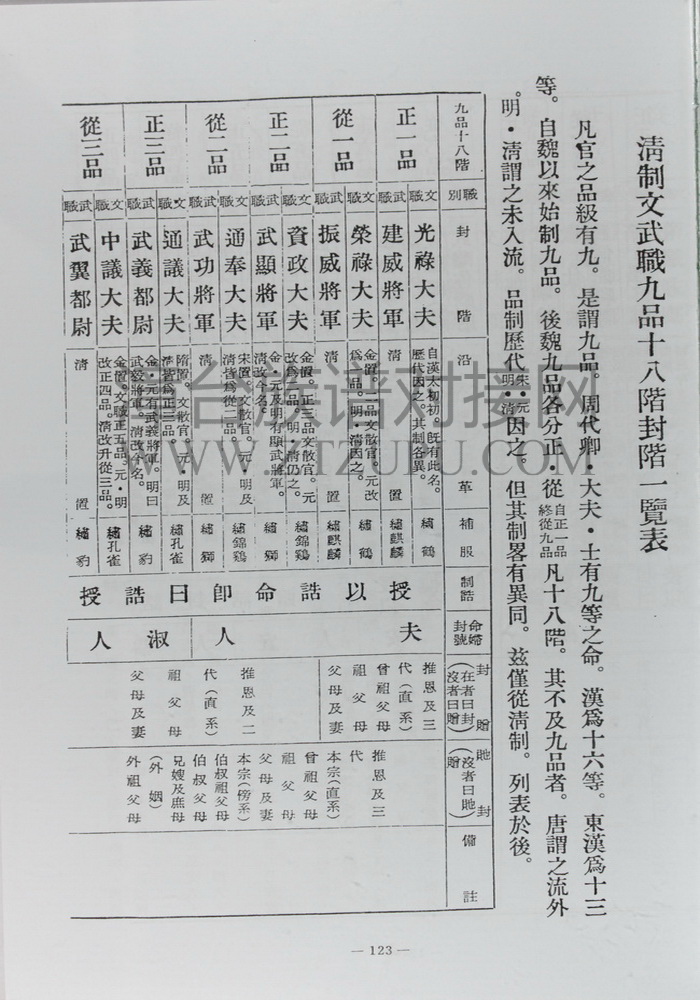 淸制文武職九品十八階封階一覽表
凡官之品級有九。是謂九品。周代卿・大夫・士有九等之命。漢爲十六等。東漢爲十三
等。自魏以來始制九品。後魏九品各分正・從自正一品終從九品凡十八階。其不及九品者。唐謂之流外
。明・淸謂之未入流。品制歷代宋・元明・淸因之。但其制畧有異同。茲僅從淸制。列表於後。
九品十八階
職別
封階
沿革
補服
制誥
命婦封號
封贈(在者曰封沒者曰贈)
貤封(沒者曰貤贈)
備註
正一品
文職
光祿大夫
自漢太初初。旣有此名。
歷代因之。其制各異。
繡鶴
武職
建威將軍
淸置
繡麒麟
從一品
文職
榮祿大夫
金置。二品文散官。元改
爲一品。明・淸因之。
繡鶴
武職
振威將軍
淸置
繡麒麟
正二品
文職
資政大夫
金置。正三品文散官。元
改爲二品。明・淸仍之。
繡錦鷄
武職
武顯將軍
金・元及明有顯武將軍。
淸改今名。
繡獅
從二品
文職
通奉大夫
宋置。文散官。元・明及
淸皆爲從二品。
繡錦鷄
武職
武功將軍
淸置
繡獅
正三品
文職
通議大夫
隋置。文散官。元・明及
淸皆爲正三品。
繡孔雀
武職
武義都尉
金・元有武義將軍。明曰
武毅將軍。淸改今名。
繡豹
從三品
文職
中議大夫
金置。文職正五品。元・明
改正四品。淸改升從三品。
繡孔雀
武職
武翼都尉
淸置
繡豹
授以誥命卽曰誥授
夫人
淑人
推恩及三
代(直系)
曾祖父母
祖父母
父母及妻
推恩及二
代(直系)
祖父母
父母及妻
推恩及三
代
本宗(直系)
曾祖父母
祖父母
父母及妻
本宗(傍系)
伯叔祖父母
伯叔父母
兄嫂及庶母
(外姻)
外祖父母
— 123 —
台族谱对接网
WWW.ZTZUPU.COM